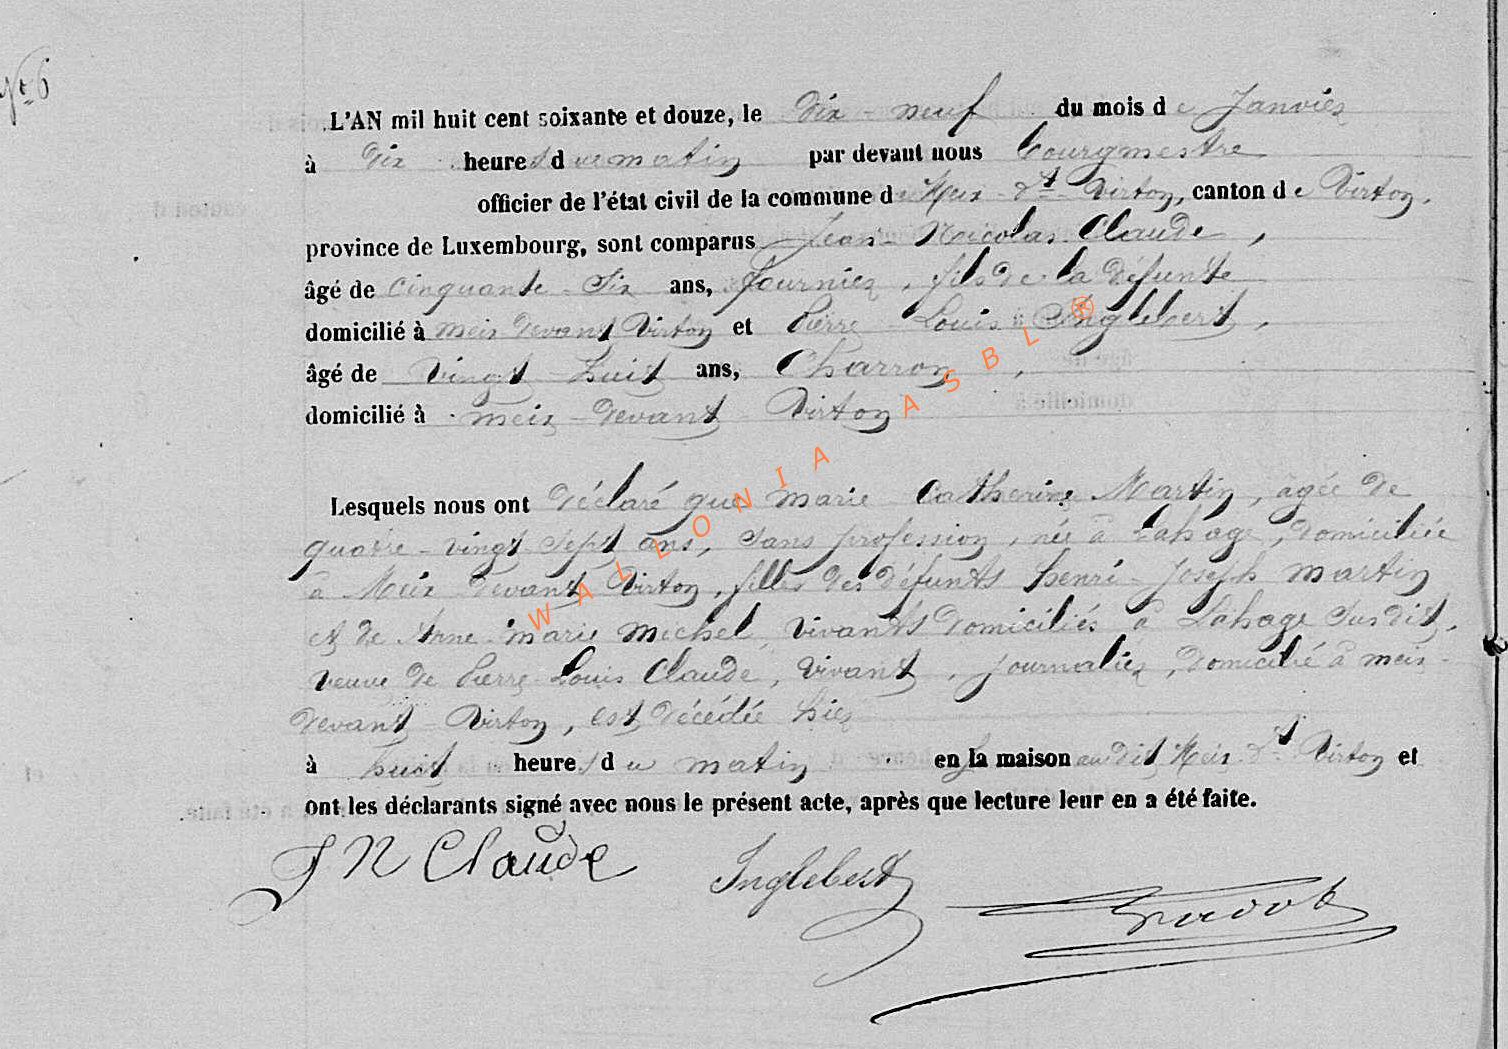 Nº 6
L'AN mil huit cent soixante et douze, le dix-neuf du mois de Janvier
à dix heures du matin par devant nous bourgmestre
officier de l'état civil de la commune de Meix-dt-Virton, canton de Virton,
province de Luxembourg, sont comparus Jean-Nicolas Claude,
âgé de cinquante-six ans, Journier, fils de la défunte
domicilié à meix devant Virton et Pierre-Louis Inglebert,
âgé de vingt-huit ans, Charron,
domicilié à meix-devant Virton
Lesquels nous ont déclaré que marie Catherine Martin, agée de
quatre-vingt-sept ans, sans profession, née à Lahage, domiciliée
à Meix devant Virton, filles des défunts henri-Joseph martin
et de Anne-marie michel, vivants domiciliés à Lahage susdit,
veuve de Pierre-Louis Claude, vivant, journalier, domicilié à meix-
devant-Virton, est décédée hier
à huit heures du matin en la maison au dit Meix-dt Virton et
ont les déclarants signé avec nous le présent acte, après que lecture leur en a été faite.
J N Claude Inglebert
WALLONIA ASBL ®